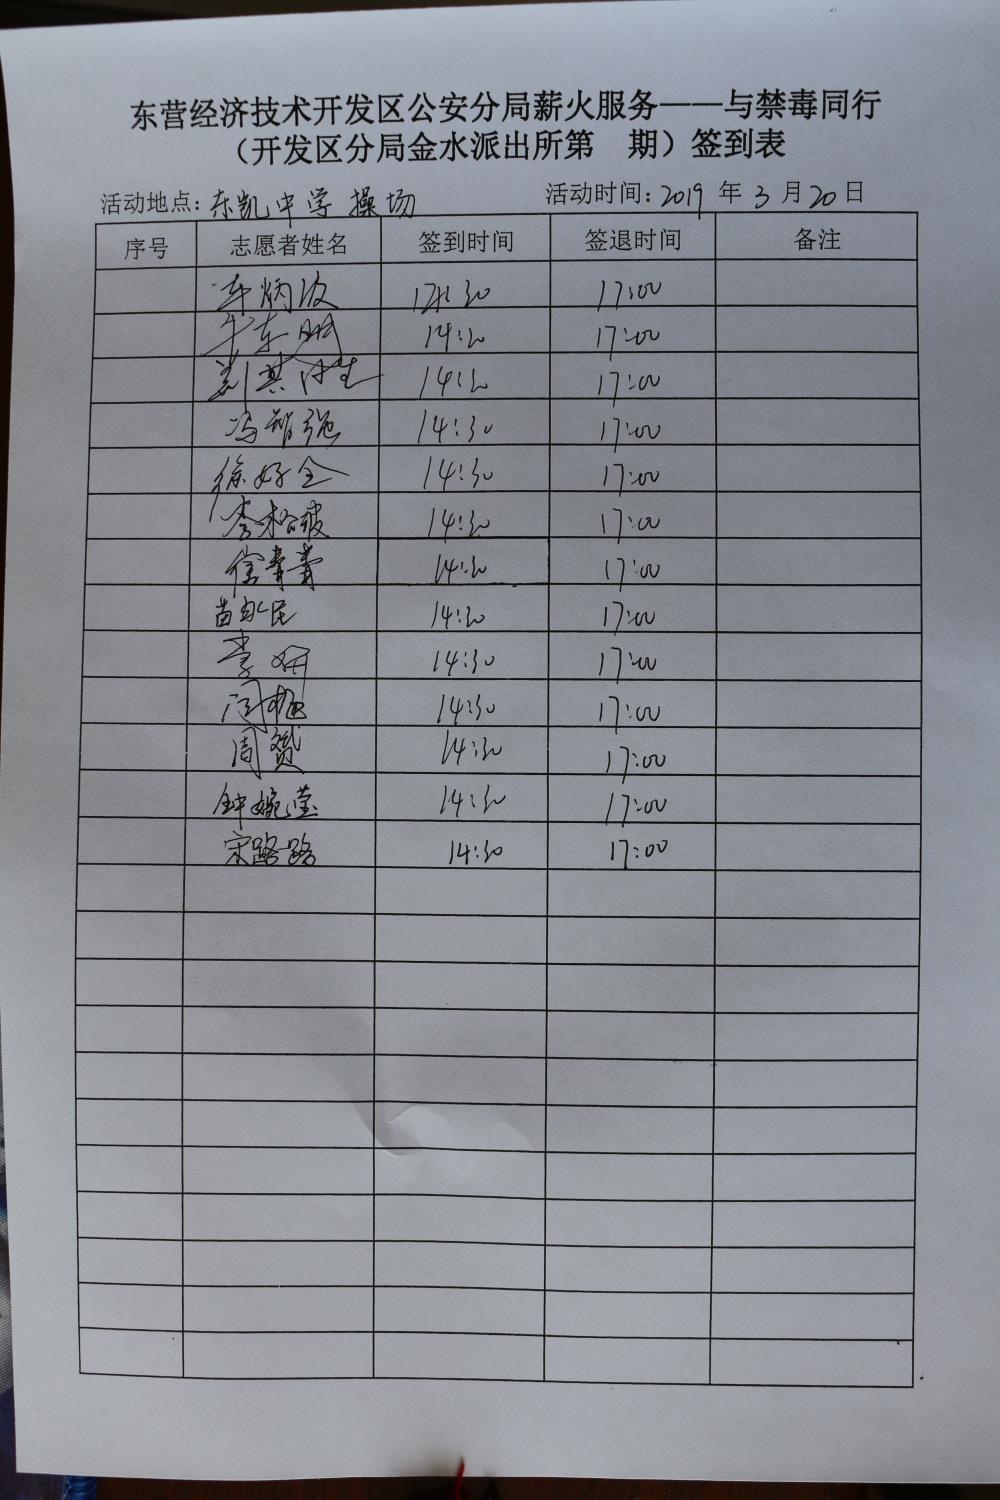 东营经济技术开发区公安分局薪火服务——与禁毒同行
（开发区分局金水派出所第 期）签到表
活动地点：东凯中学操场 活动时间：2019 年 3 月 20 日
序号 志愿者姓名 签到时间 签退时间 备注
车炳波 14:30 17:00
牛东 14:30 17:00
14:30 17:00
冯智强 14:30 17:00
徐好全 14:30 17:00
李松破 14:30 17:00
徐青青 14:30 17:00
苗 民 14:30 17:00
李妍 14:30 17:00
闫旭 14:30 17:00
周赟 14:30 17:00
钟婉莹 14:30 17:00
宋路路 14:30 17:00